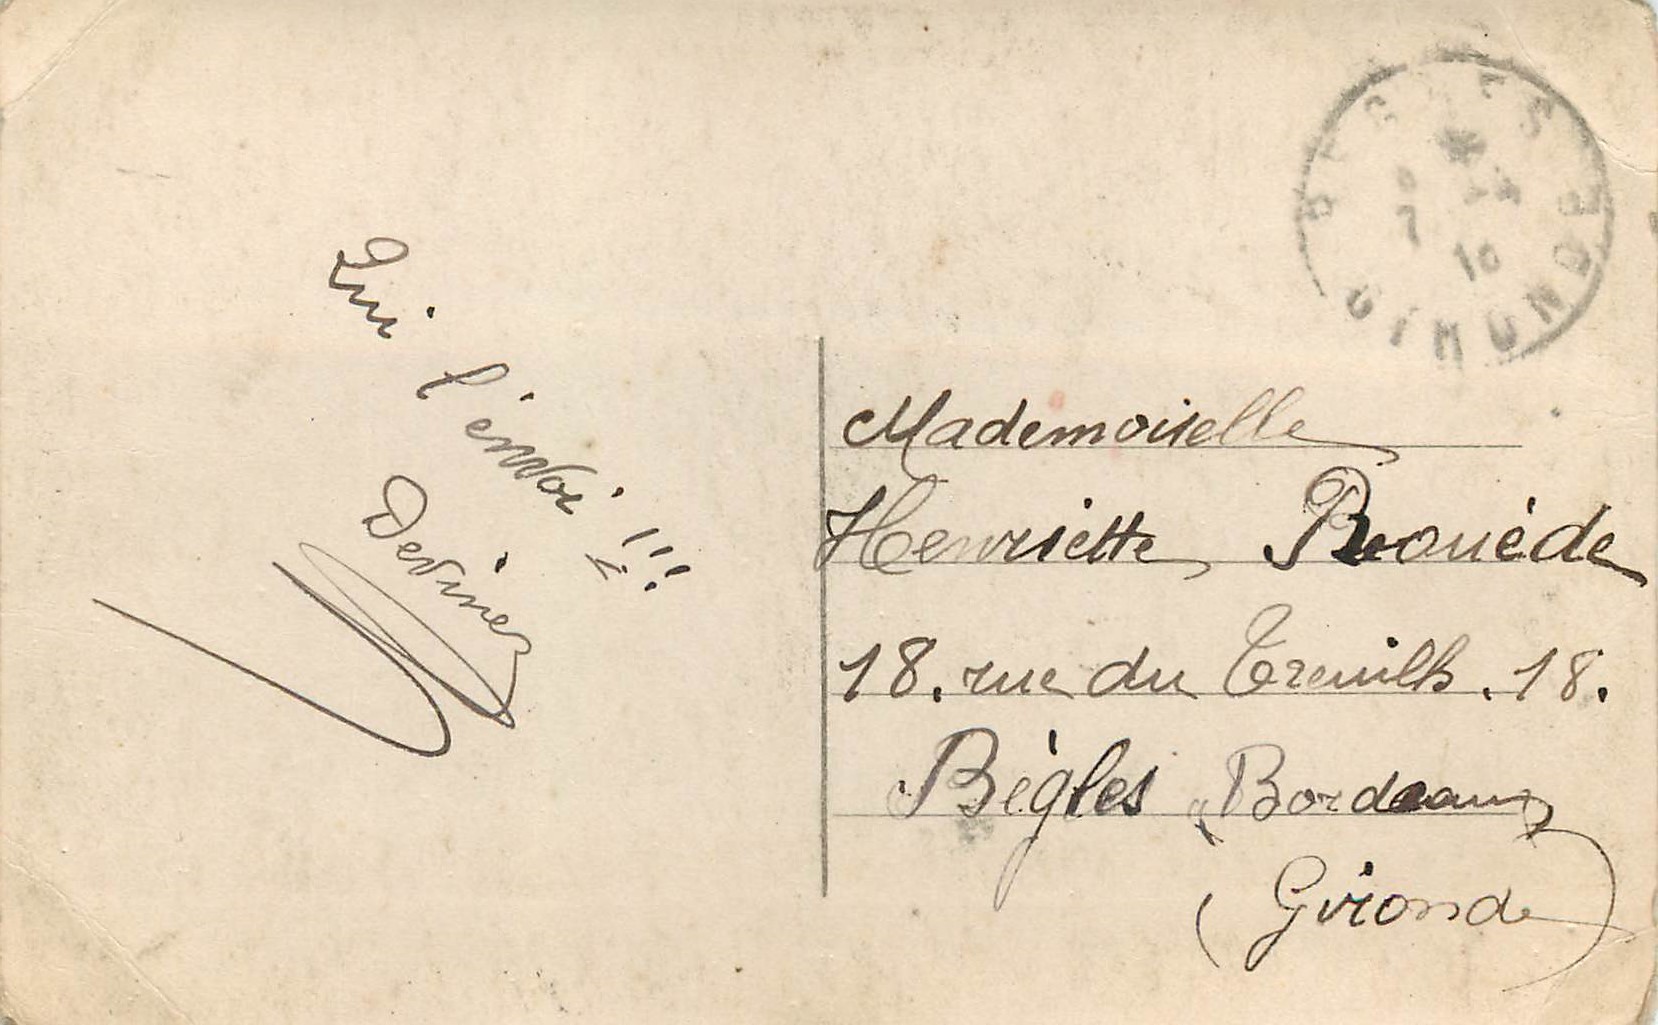 Qui l'envoi !!!
Devinez
BEGLES
GIRONDE
Mademoiselle
Henriette Rouède
18. rue du Treuilh. 18.
Bègles (Bordeaux)
(Gironde)